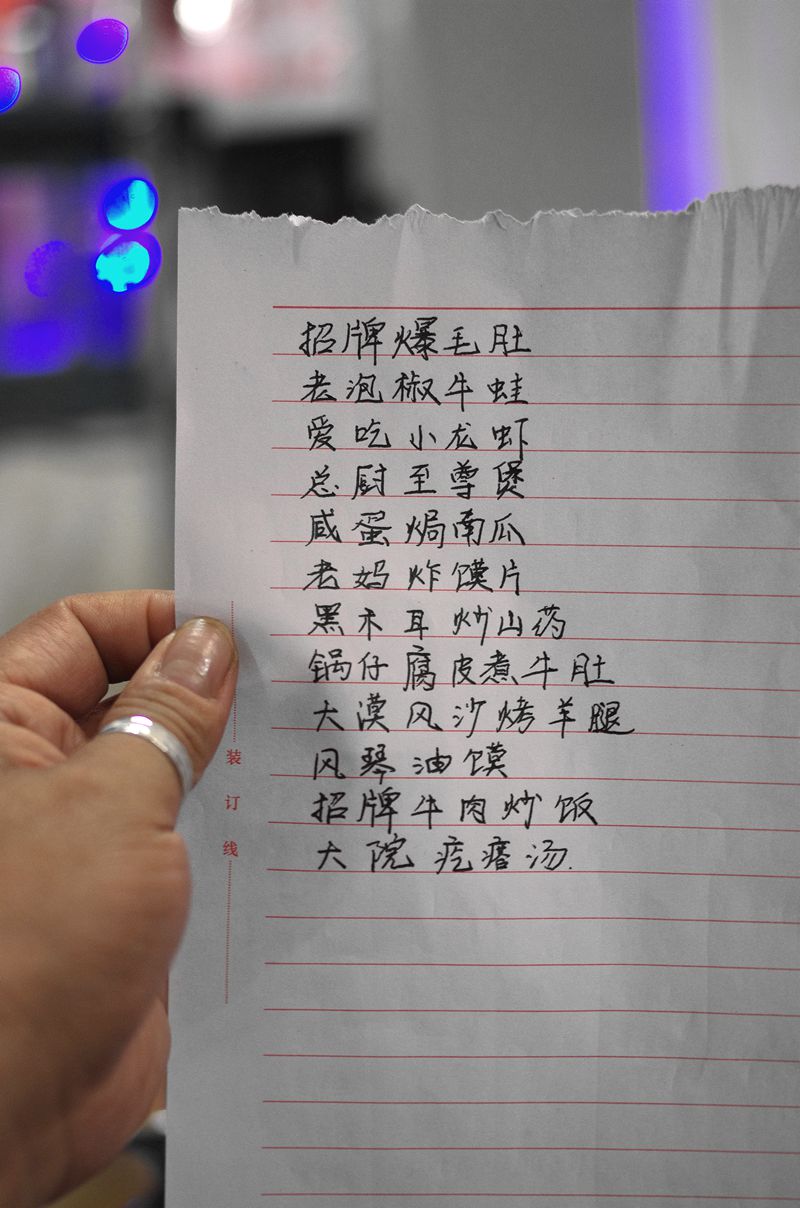 招牌爆毛肚
老泡椒牛蛙
爱吃小龙虾
总厨至尊煲
咸蛋焗南瓜
老妈炸馍片
黑木耳炒山药
锅仔腐皮煮牛肚
大漠风沙烤羊腿
风琴油馍
招牌牛肉炒饭
大院疙瘩汤.
装订线